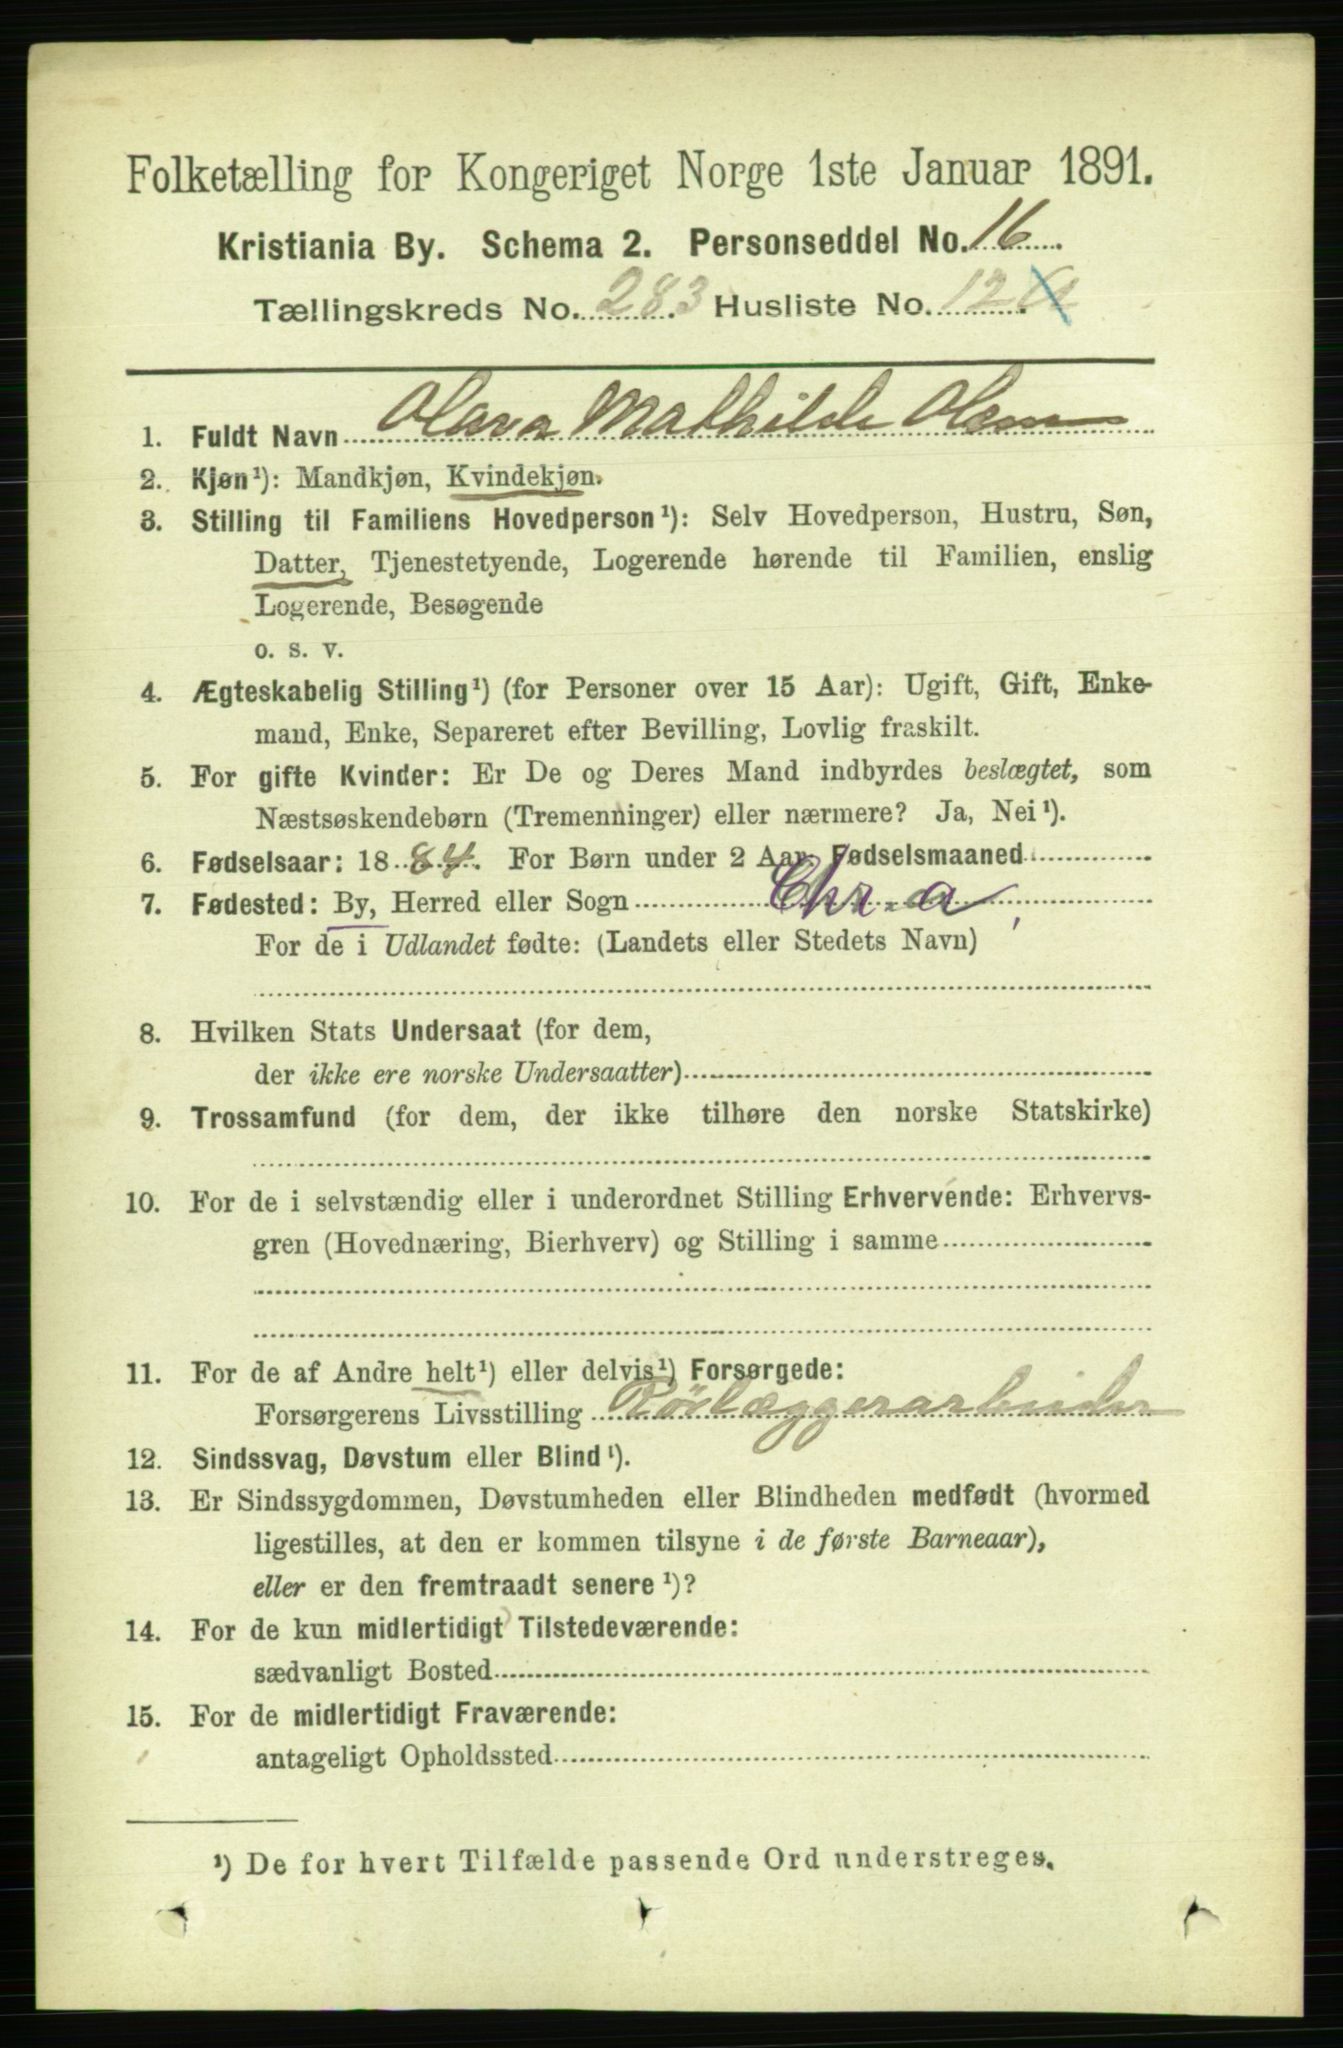 Folketælling for Kongeriget Norge 1ste Januar 1891.
Kristiania By. Schema 2. Personseddel No. 16.
Tællingskreds No. 283. Husliste No. 12.
1. Fuldt Navn Olava Mathilde Olsen
2. Kjøn¹): Mandkjøn, Kvindekjøn.
3. Stilling til Familiens Hovedperson¹): Selv Hovedperson, Hustru, Søn,
Datter, Tjenestetyende, Logerende hørende til Familien, enslig
Logerende, Besøgende
o. s. v.
4. Ægteskabelig Stilling¹) (for Personer over 15 Aar): Ugift, Gift, Enke-
mand, Enke, Separeret efter Bevilling, Lovlig fraskilt.
5. For gifte Kvinder: Er De og Deres Mand indbyrdes beslægtet, som
Næstsøskendebørn (Tremenninger) eller nærmere? Ja, Nei¹).
6. Fødselsaar: 1884. For Børn under 2 Aar: Fødselsmaaned
7. Fødested: By, Herred eller Sogn Chr.a
For de i Udlandet fødte: (Landets eller Stedets Navn)
8. Hvilken Stats Undersaat (for dem,
der ikke ere norske Undersaatter)
9. Trossamfund (for dem, der ikke tilhøre den norske Statskirke)
10. For de i selvstændig eller i underordnet Stilling Erhvervende: Erhvervs-
gren (Hovednæring, Bierhverv) og Stilling i samme
11. For de af Andre helt¹) eller delvis¹) Forsørgede:
Forsørgerens Livsstilling Rörlæggerarbeider
12. Sindssvag, Døvstum eller Blind¹).
13. Er Sindssygdommen, Døvstumheden eller Blindheden medfødt (hvormed
ligestilles, at den er kommen tilsyne i de første Barneaar),
eller er den fremtraadt senere¹)?
14. For de kun midlertidigt Tilstedeværende:
sædvanligt Bosted
15. For de midlertidigt Fraværende:
antageligt Opholdssted
¹) De for hvert Tilfælde passende Ord understreges.